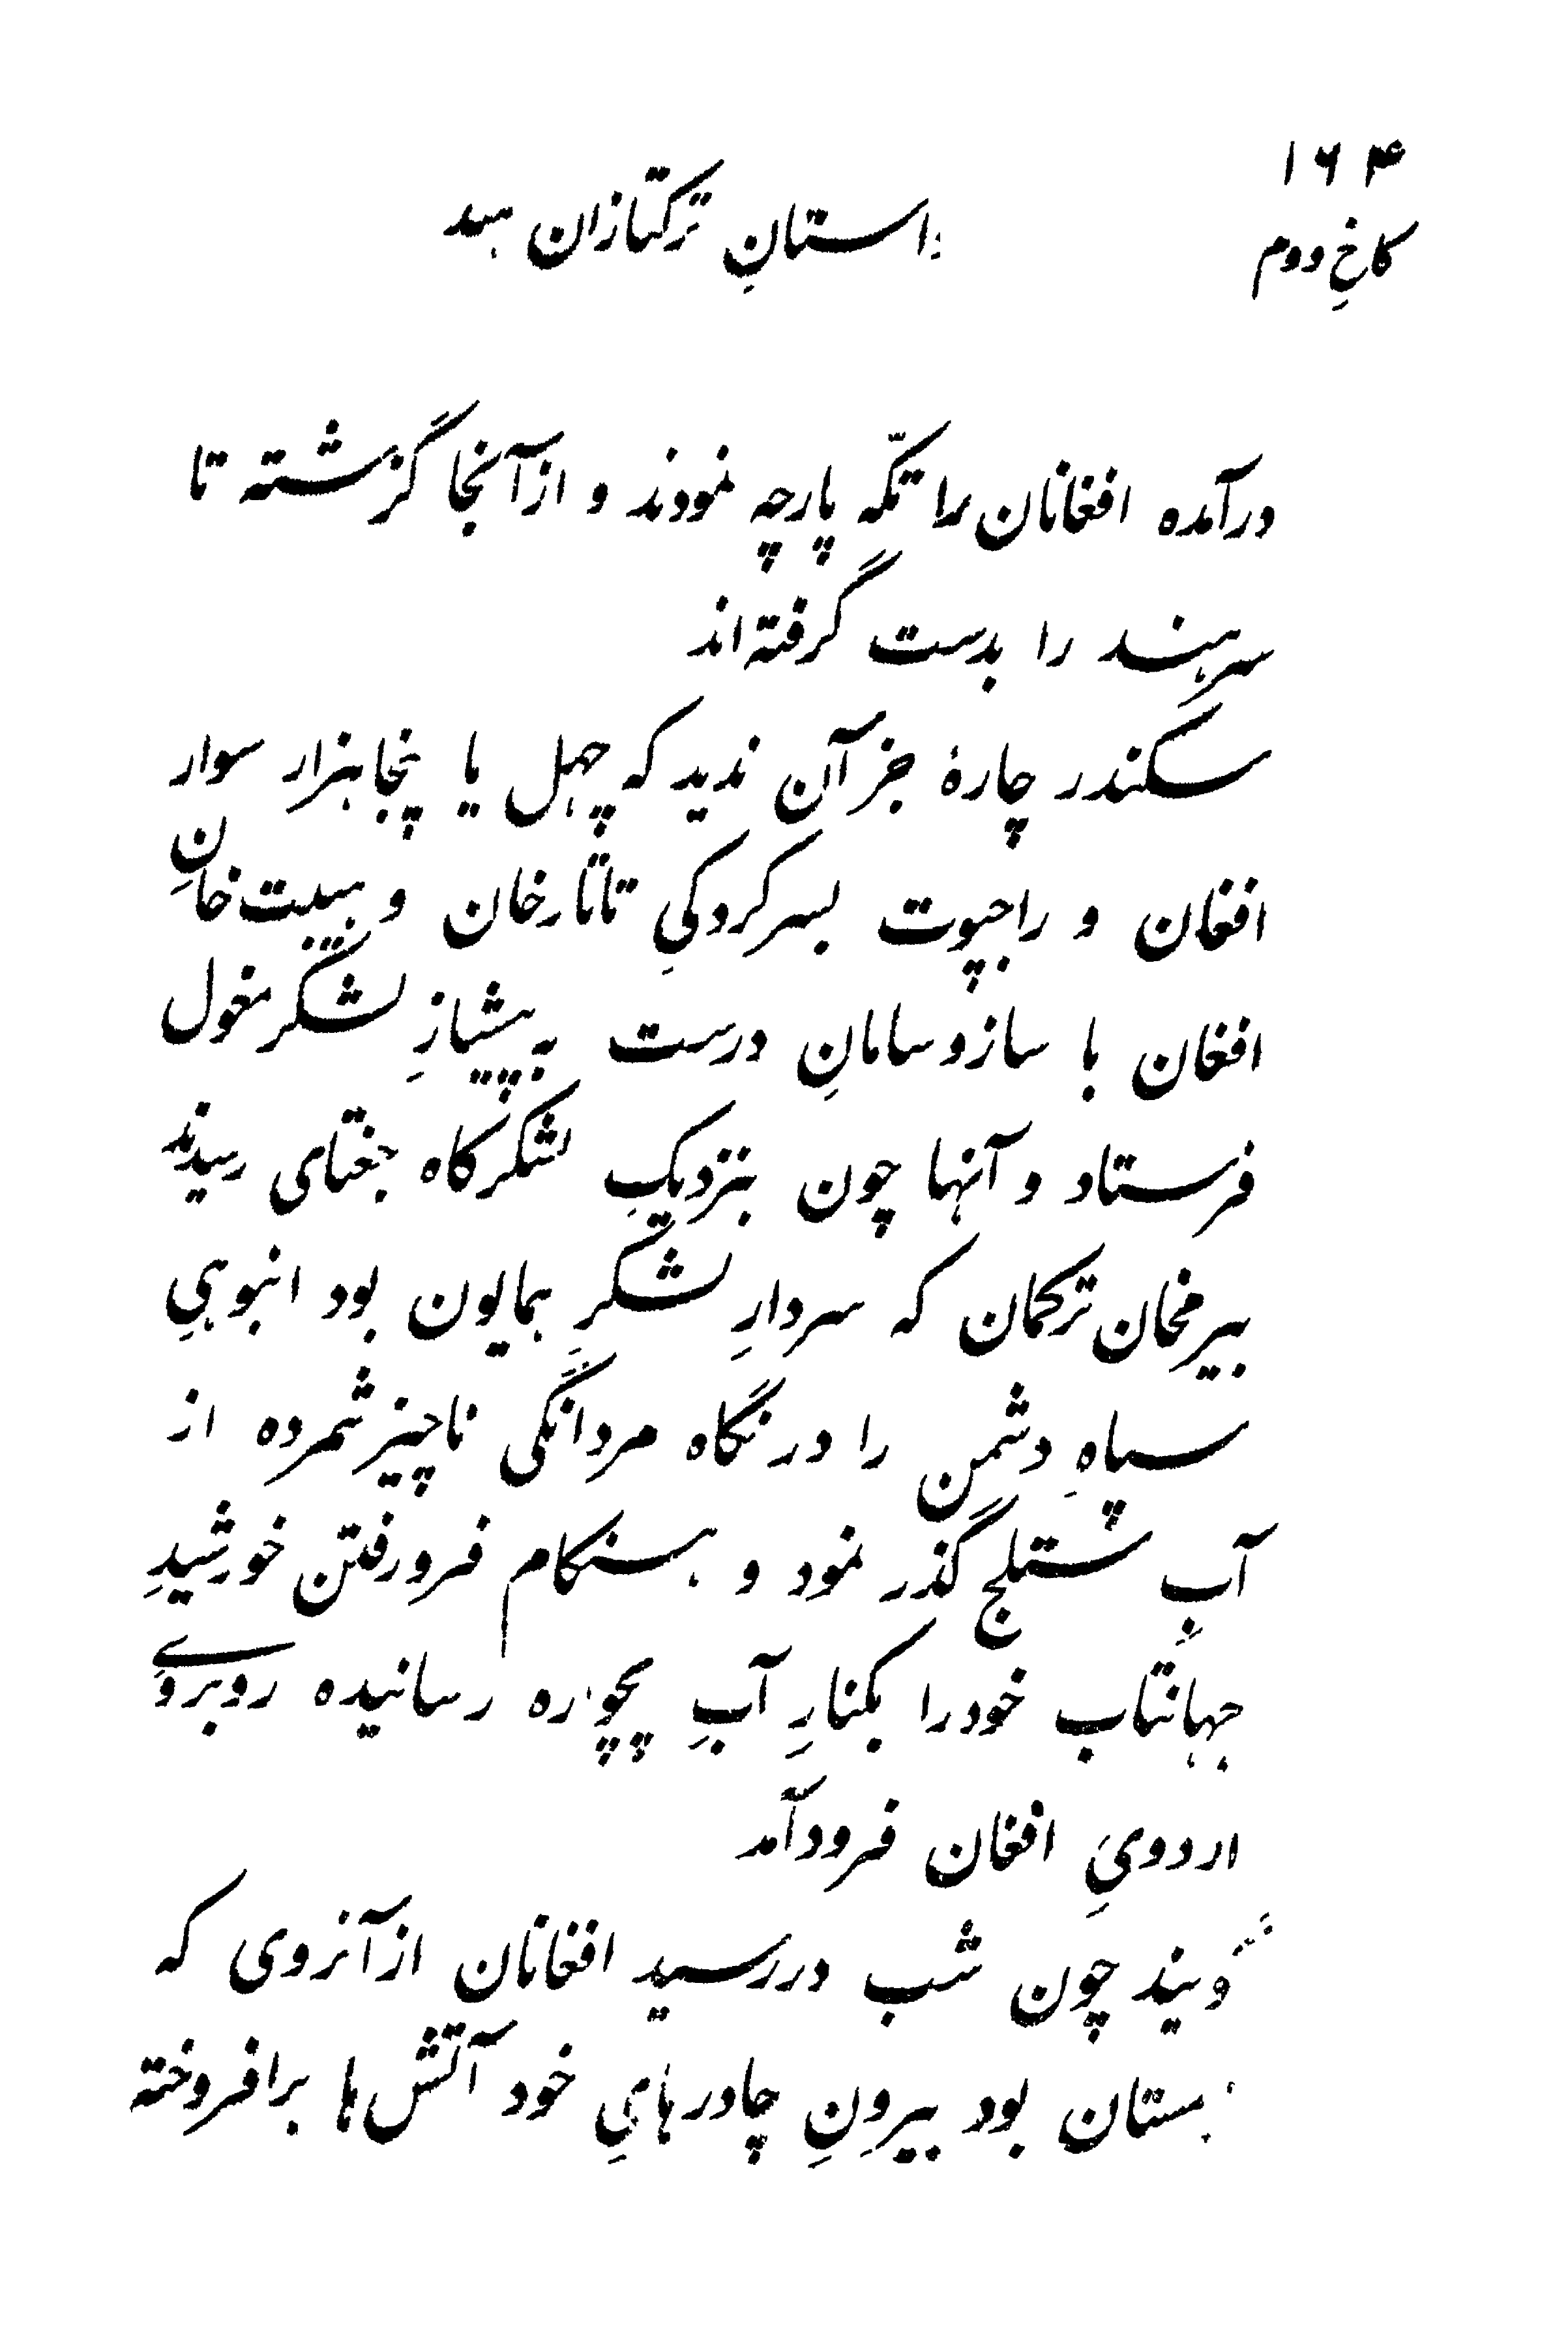 ۱۶۴
کاخِ دوم
داستانِ ترکتازان هند
درآمده افغانان را تکّه پارچه نمودند و از آنجا گزشته تا
سرهند را بدست گرفته‌اند
سکندر چارهٔ جز آن ندید که چهل یا پنجاهزار سوار
افغان و راجپوت بسرکردکیِ تاتارخان و هیبت خانِ
افغان با ساز و سامانِ درست به پیشبازِ لشگر مغول
فرستاد و آنها چون بنزدیکِ لشکرکاه جغتای رسیدند
بیرمخان ترکمان که سردارِ لشگرِ همایون بود انبوهیِ
سپاهِ دشمن را در نگاه مردانگی ناچیز شمرده از
آبِ ستلج گذر نمود و هنکام فرورفتن خورشیدِ
جهانتاب خود را بکنارِ آبِ پچواره رسانیده روبروے
اردویِ افغان فرودآمد
گویند چون شب دررسید افغانان از آنروی که
زمستان بود بیرونِ چادرهایِ خود آتش‌ها برافروخته